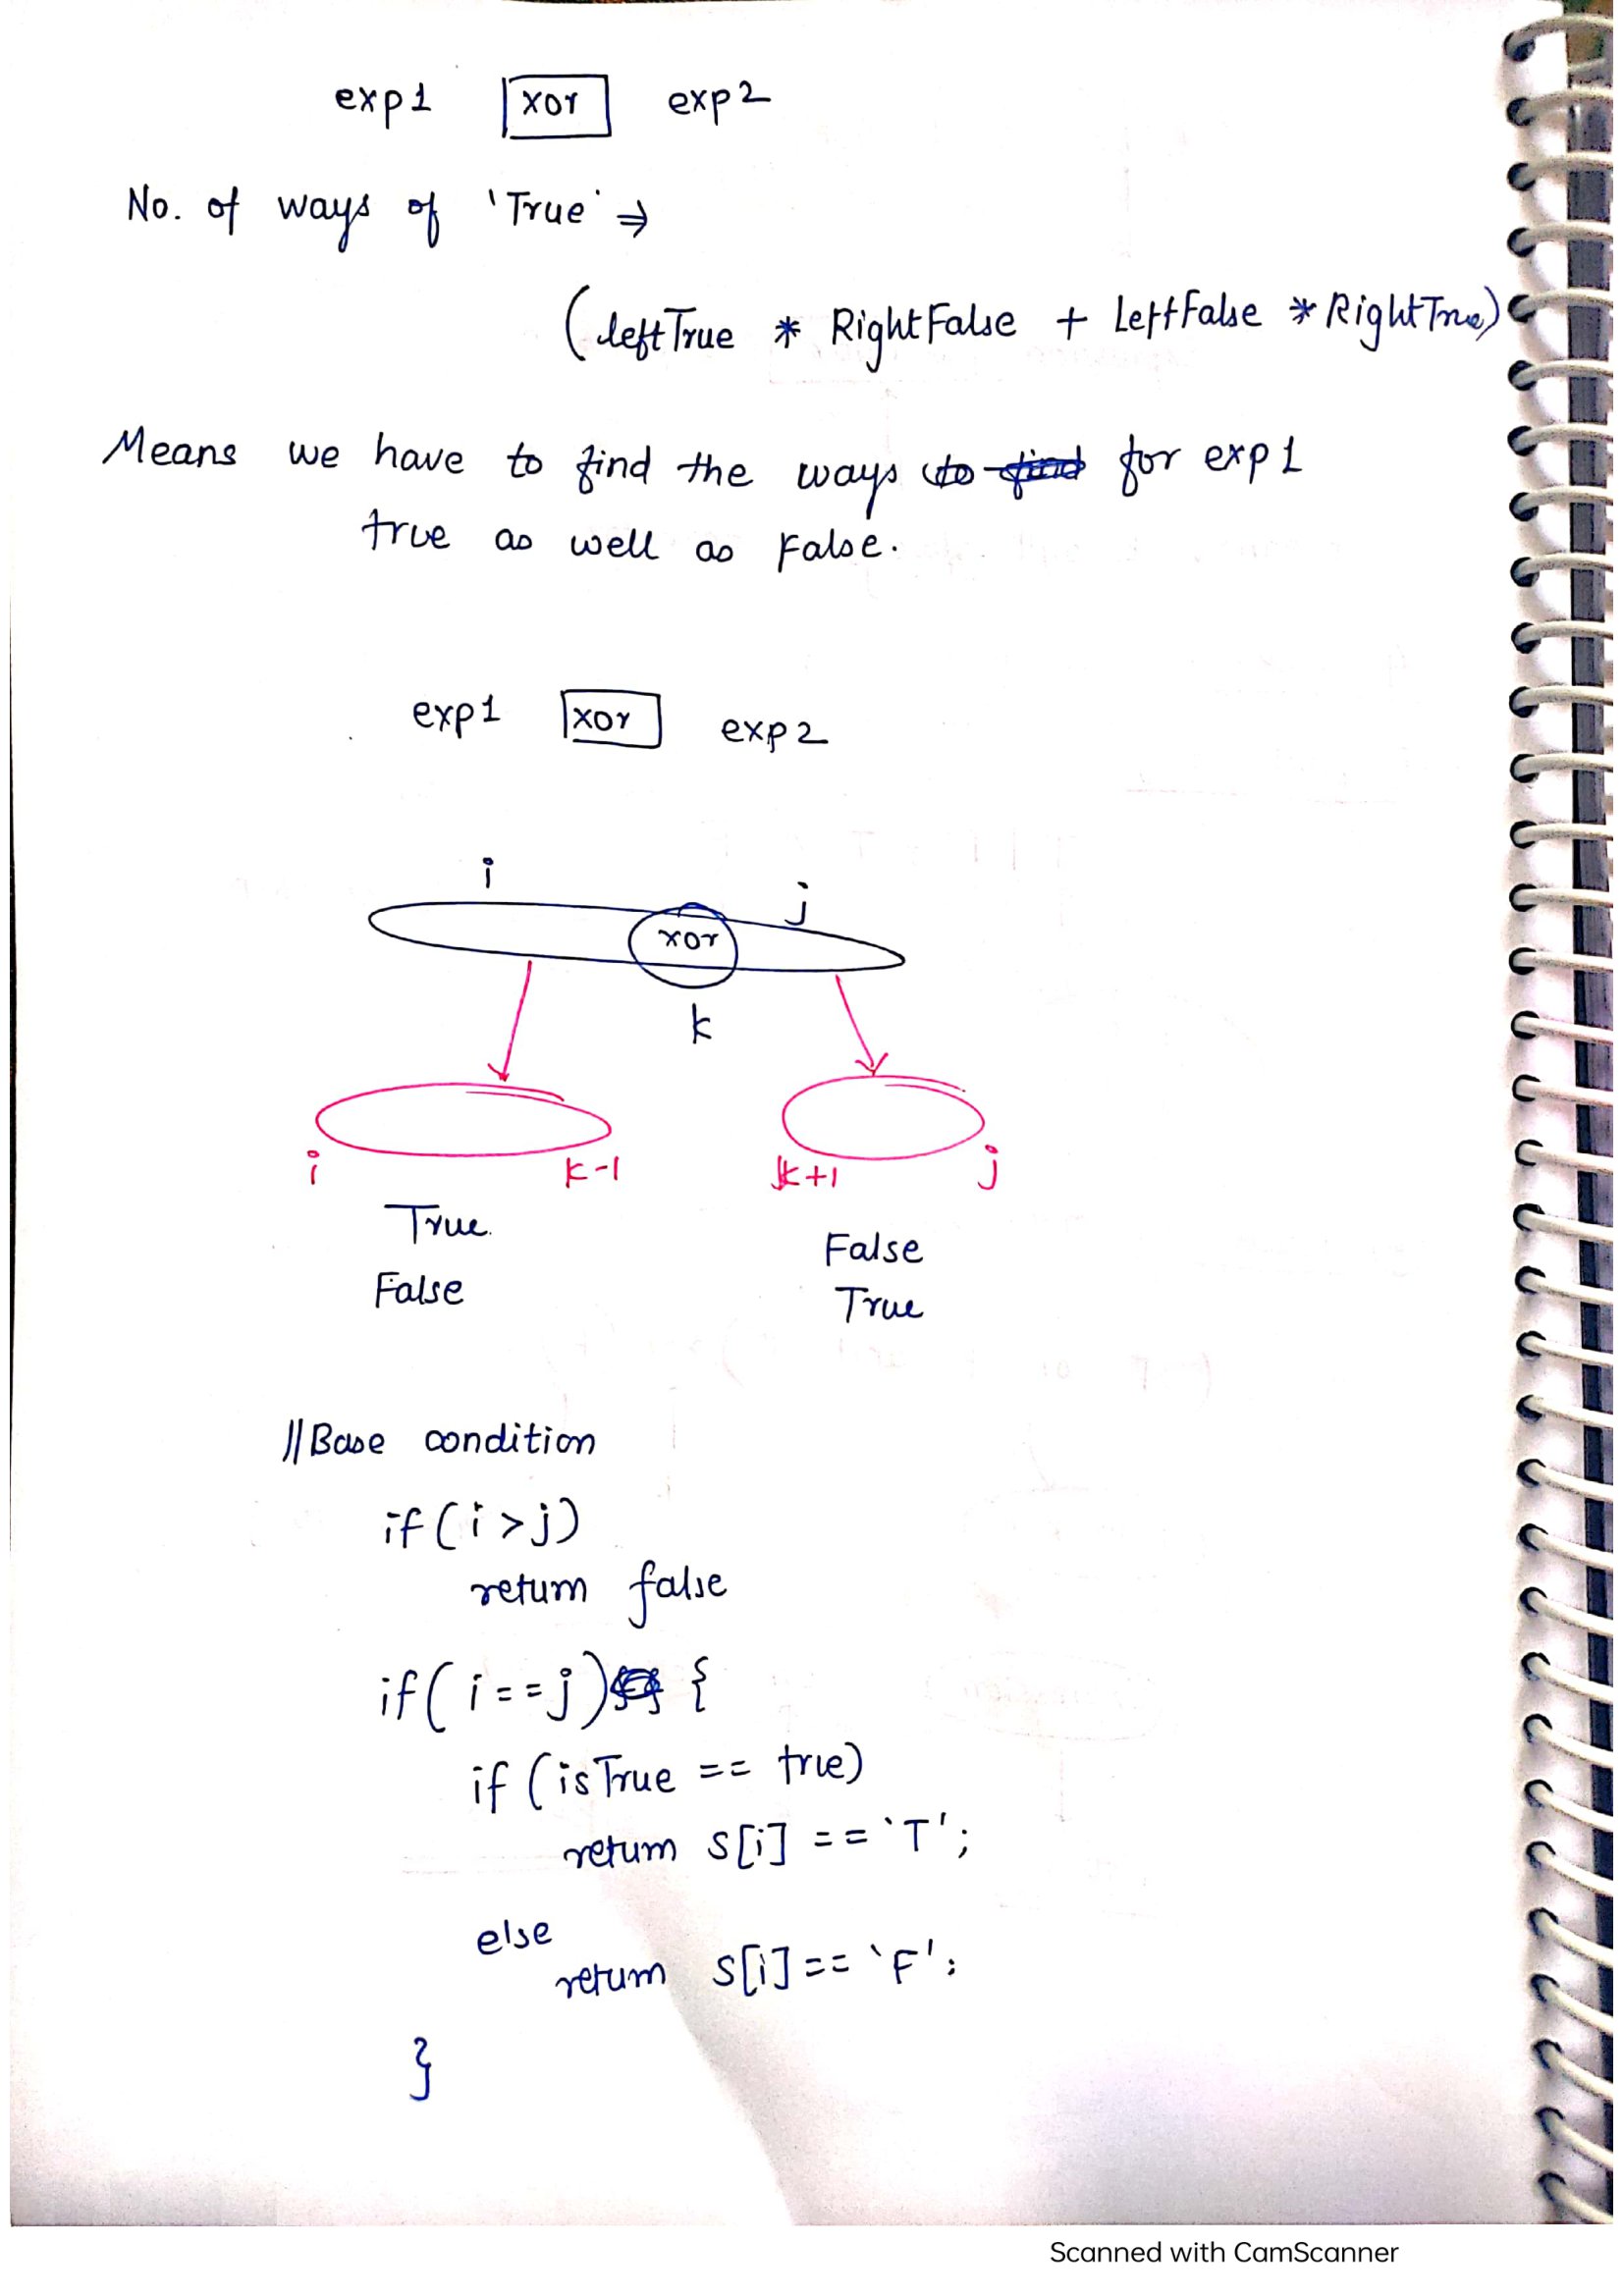 exp1 xor exp2
No. of ways of 'True' ⇒
(leftTrue * RightFalse + LeftFalse * RightTrue)
Means we have to find the ways to find for exp1
true as well as False.
exp1 xor exp2
i j
xor
k
i k-1 k+1 j
True False
False True
//Base condition
if(i>j)
return false
if(i==j) {
if (isTrue == true)
return s[i] == 'T';
else
return s[i] == 'F';
}
Scanned with CamScanner